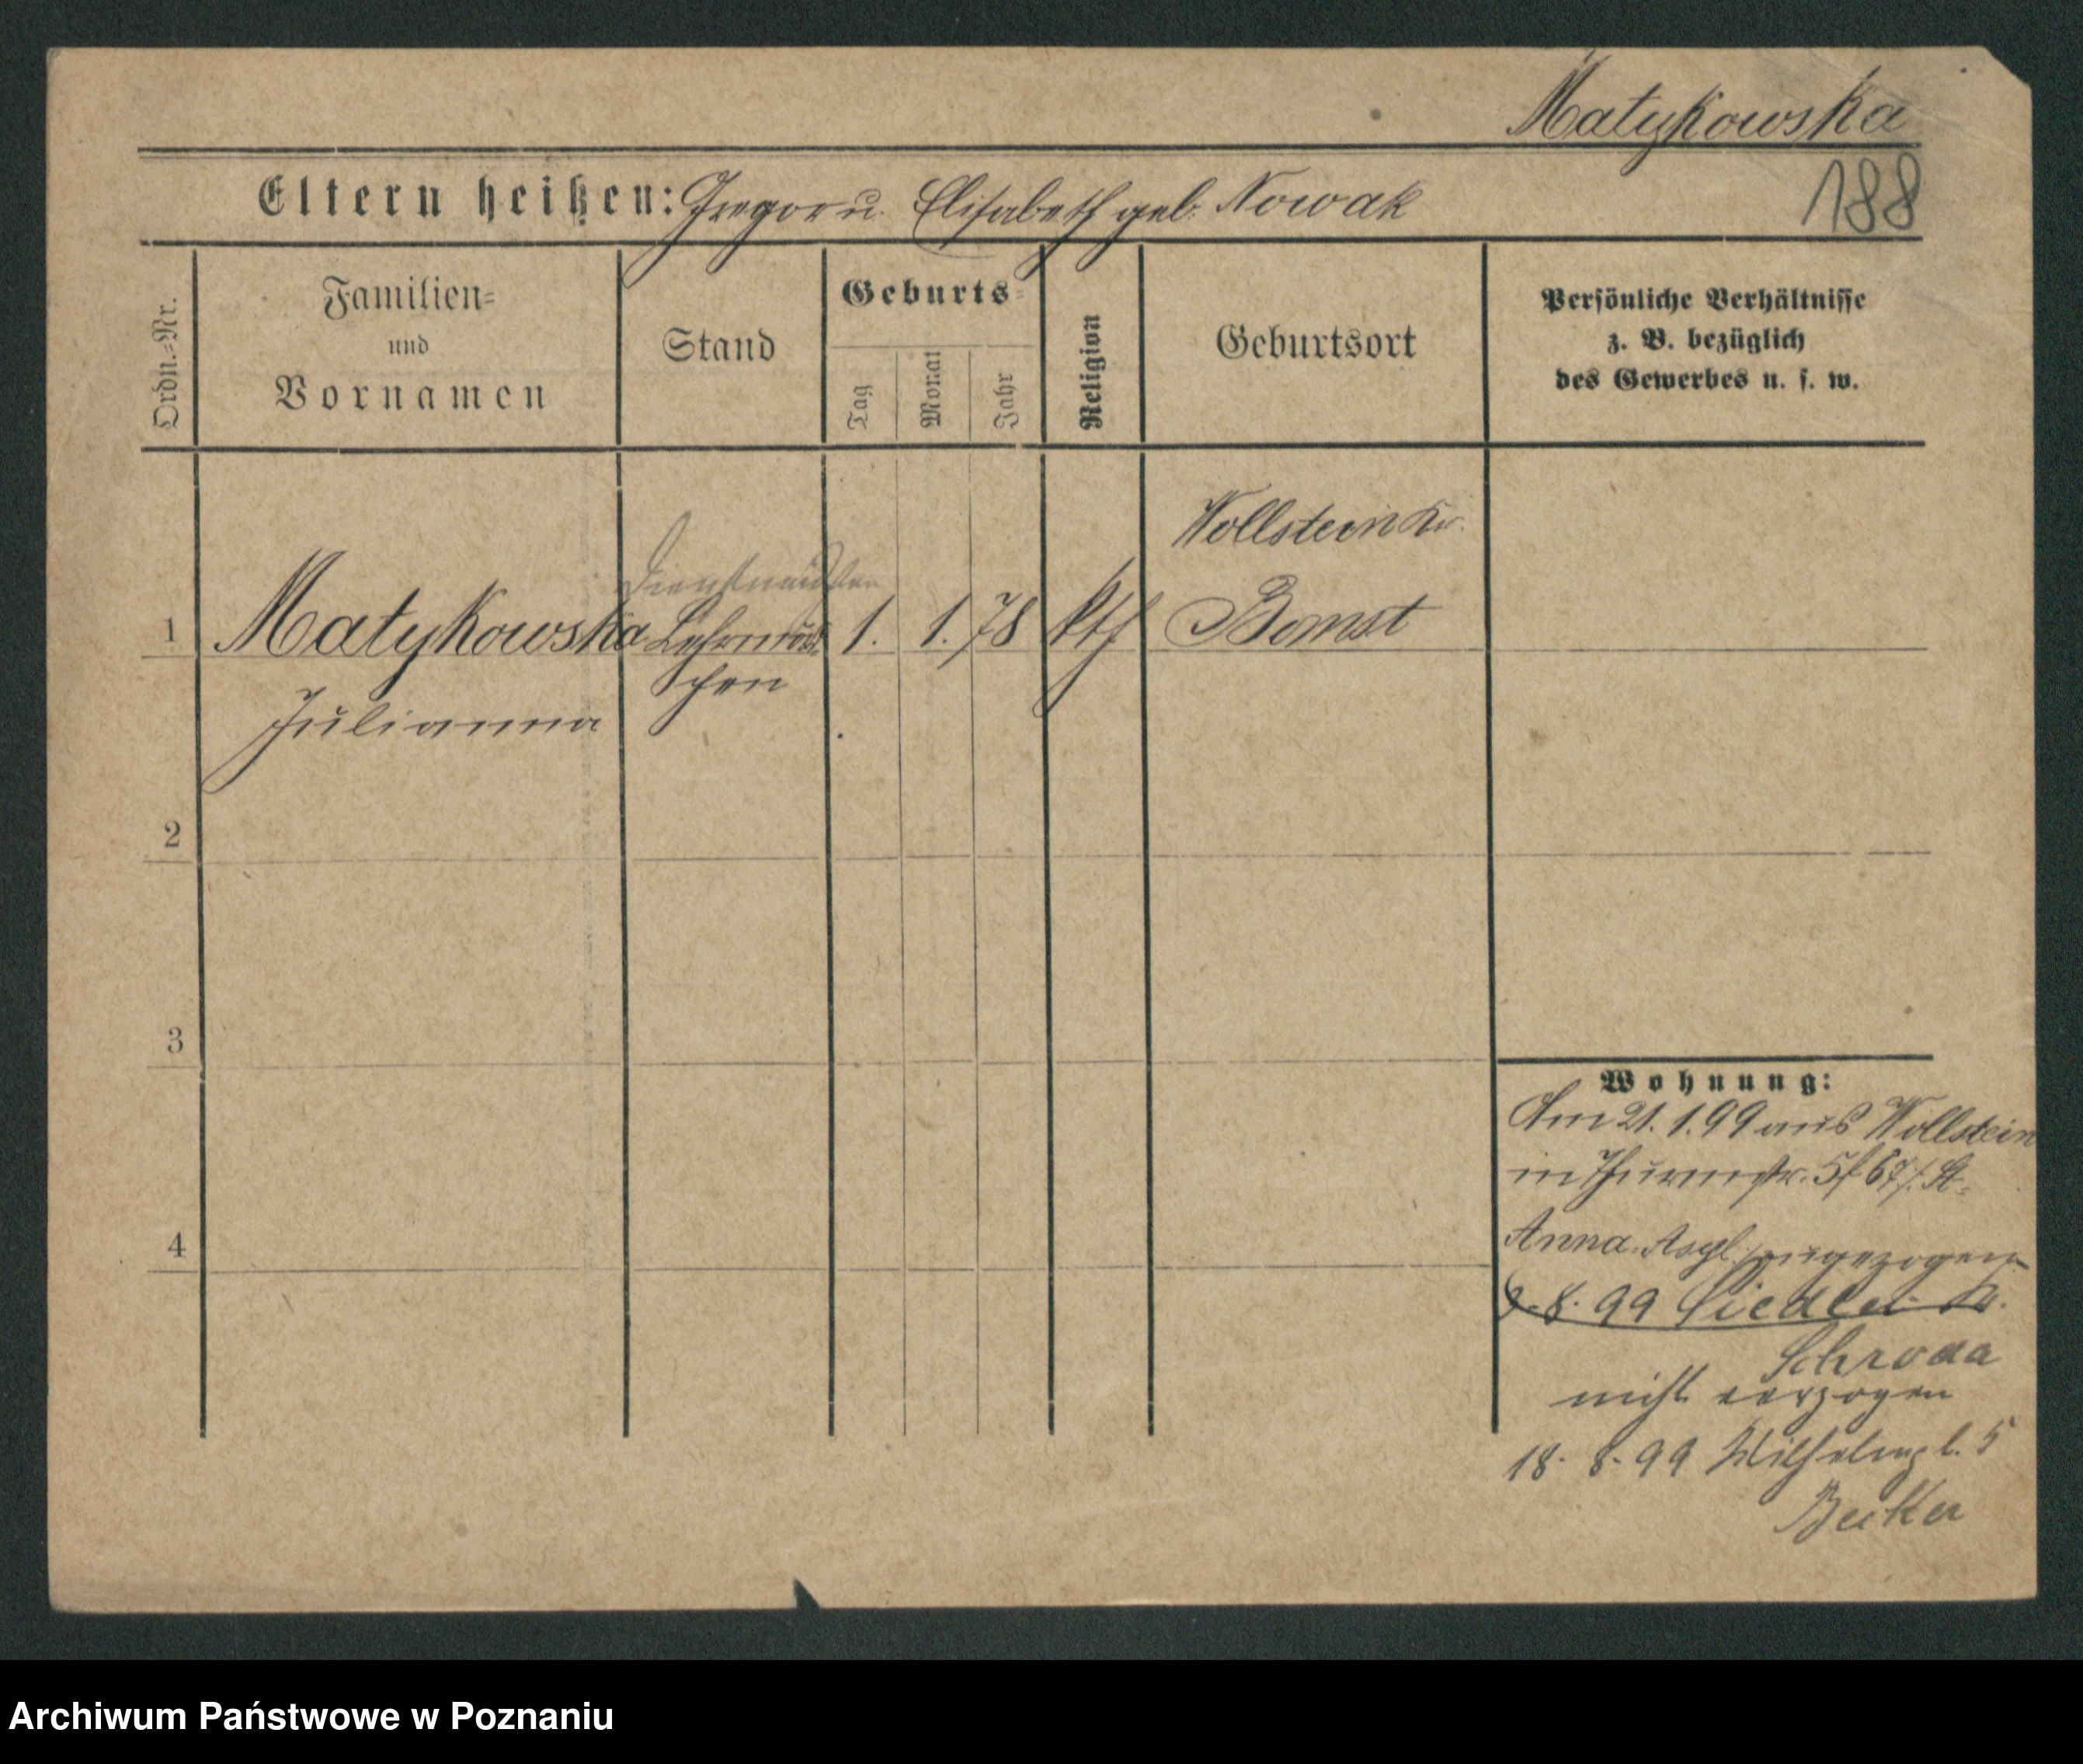 Matykowska
188
Eltern heißen: Gregor u. Elisabeth geb. Nowak
Ordn.-Nr.
Familien-
und
Vornamen
Stand
Geburts-
Tag
Monat
Jahr
Religion
Geburtsort
Persönliche Verhältnisse
z. B. bezüglich
des Gewerbes u. s. w.
Wollstein Kr.
Dienstmädchen
1 Matykowska Lehrmäd 1. 1. 78 kth Bomst
chen
Julianna
2
3
4
Wohnung:
Am 21.1.99 aus Wollstein
in Thurmstr. St.
Anna. Asyl. zugezogen
9.8.99 Siedlec Kr.
Schroda
nicht verzogen
18.8.99 Wilhelmpl. 5
Becker
Archiwum Państwowe w Poznaniu